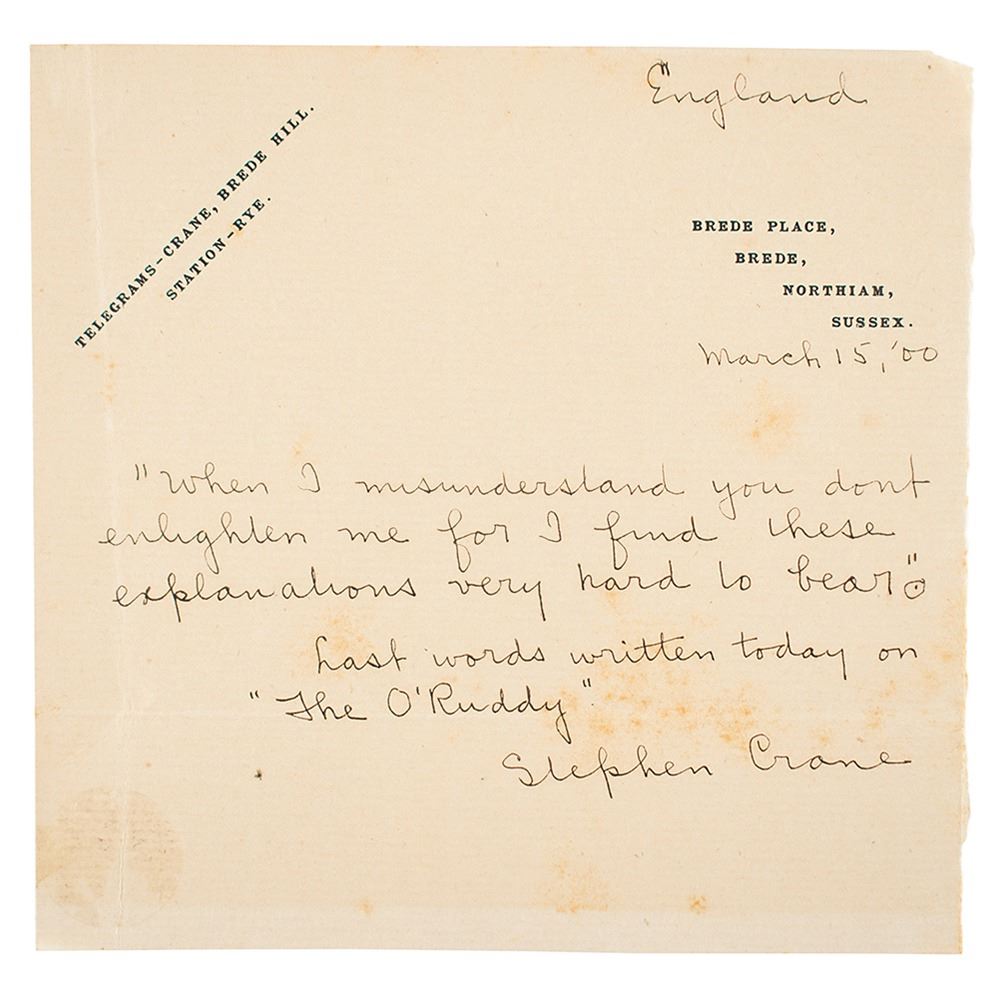 England
TELEGRAMS-CRANE, BREDE HILL.
STATION-RYE.
BREDE PLACE,
BREDE,
NORTHIAM,
SUSSEX.
March 15, '00
"When I misunderstand you dont
enlighten me for I find these
explanations very hard to bear".
Last words written today on
"The O'Ruddy"
Stephen Crane